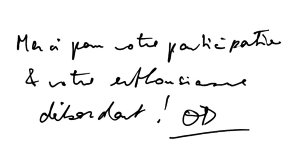 Merci pour votre participation
& votre enthousiasme
débordant ! OD